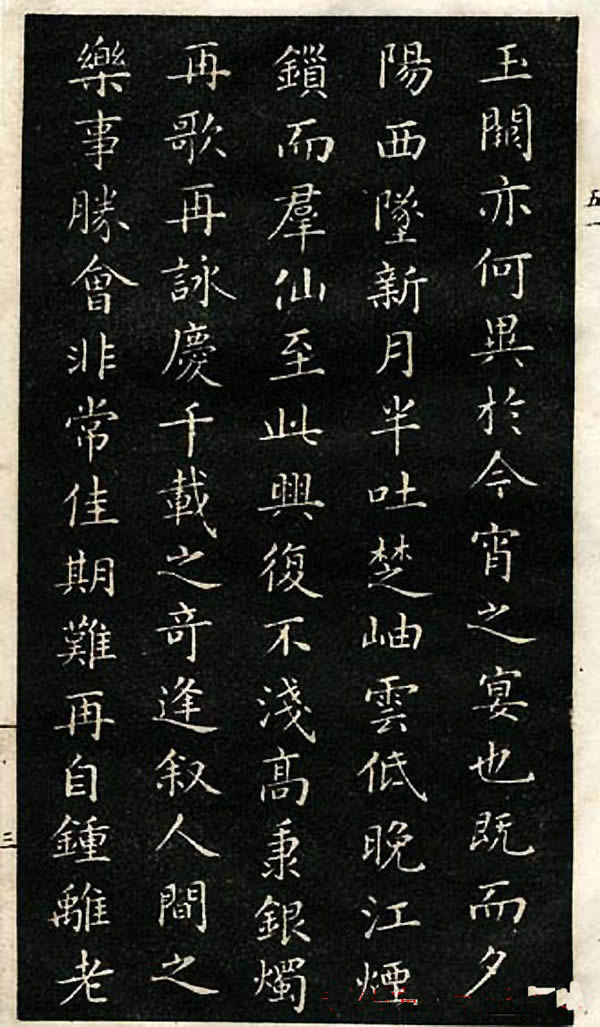 玉闕亦何異於今宵之宴也既而夕
陽西墜新月半吐楚岫雲低晚江煙
鎖而羣仙至此興復不淺高秉銀燭
再歌再詠慶千載之奇逢叙人間之
樂事勝會非常佳期難再自鍾離老
五一
三